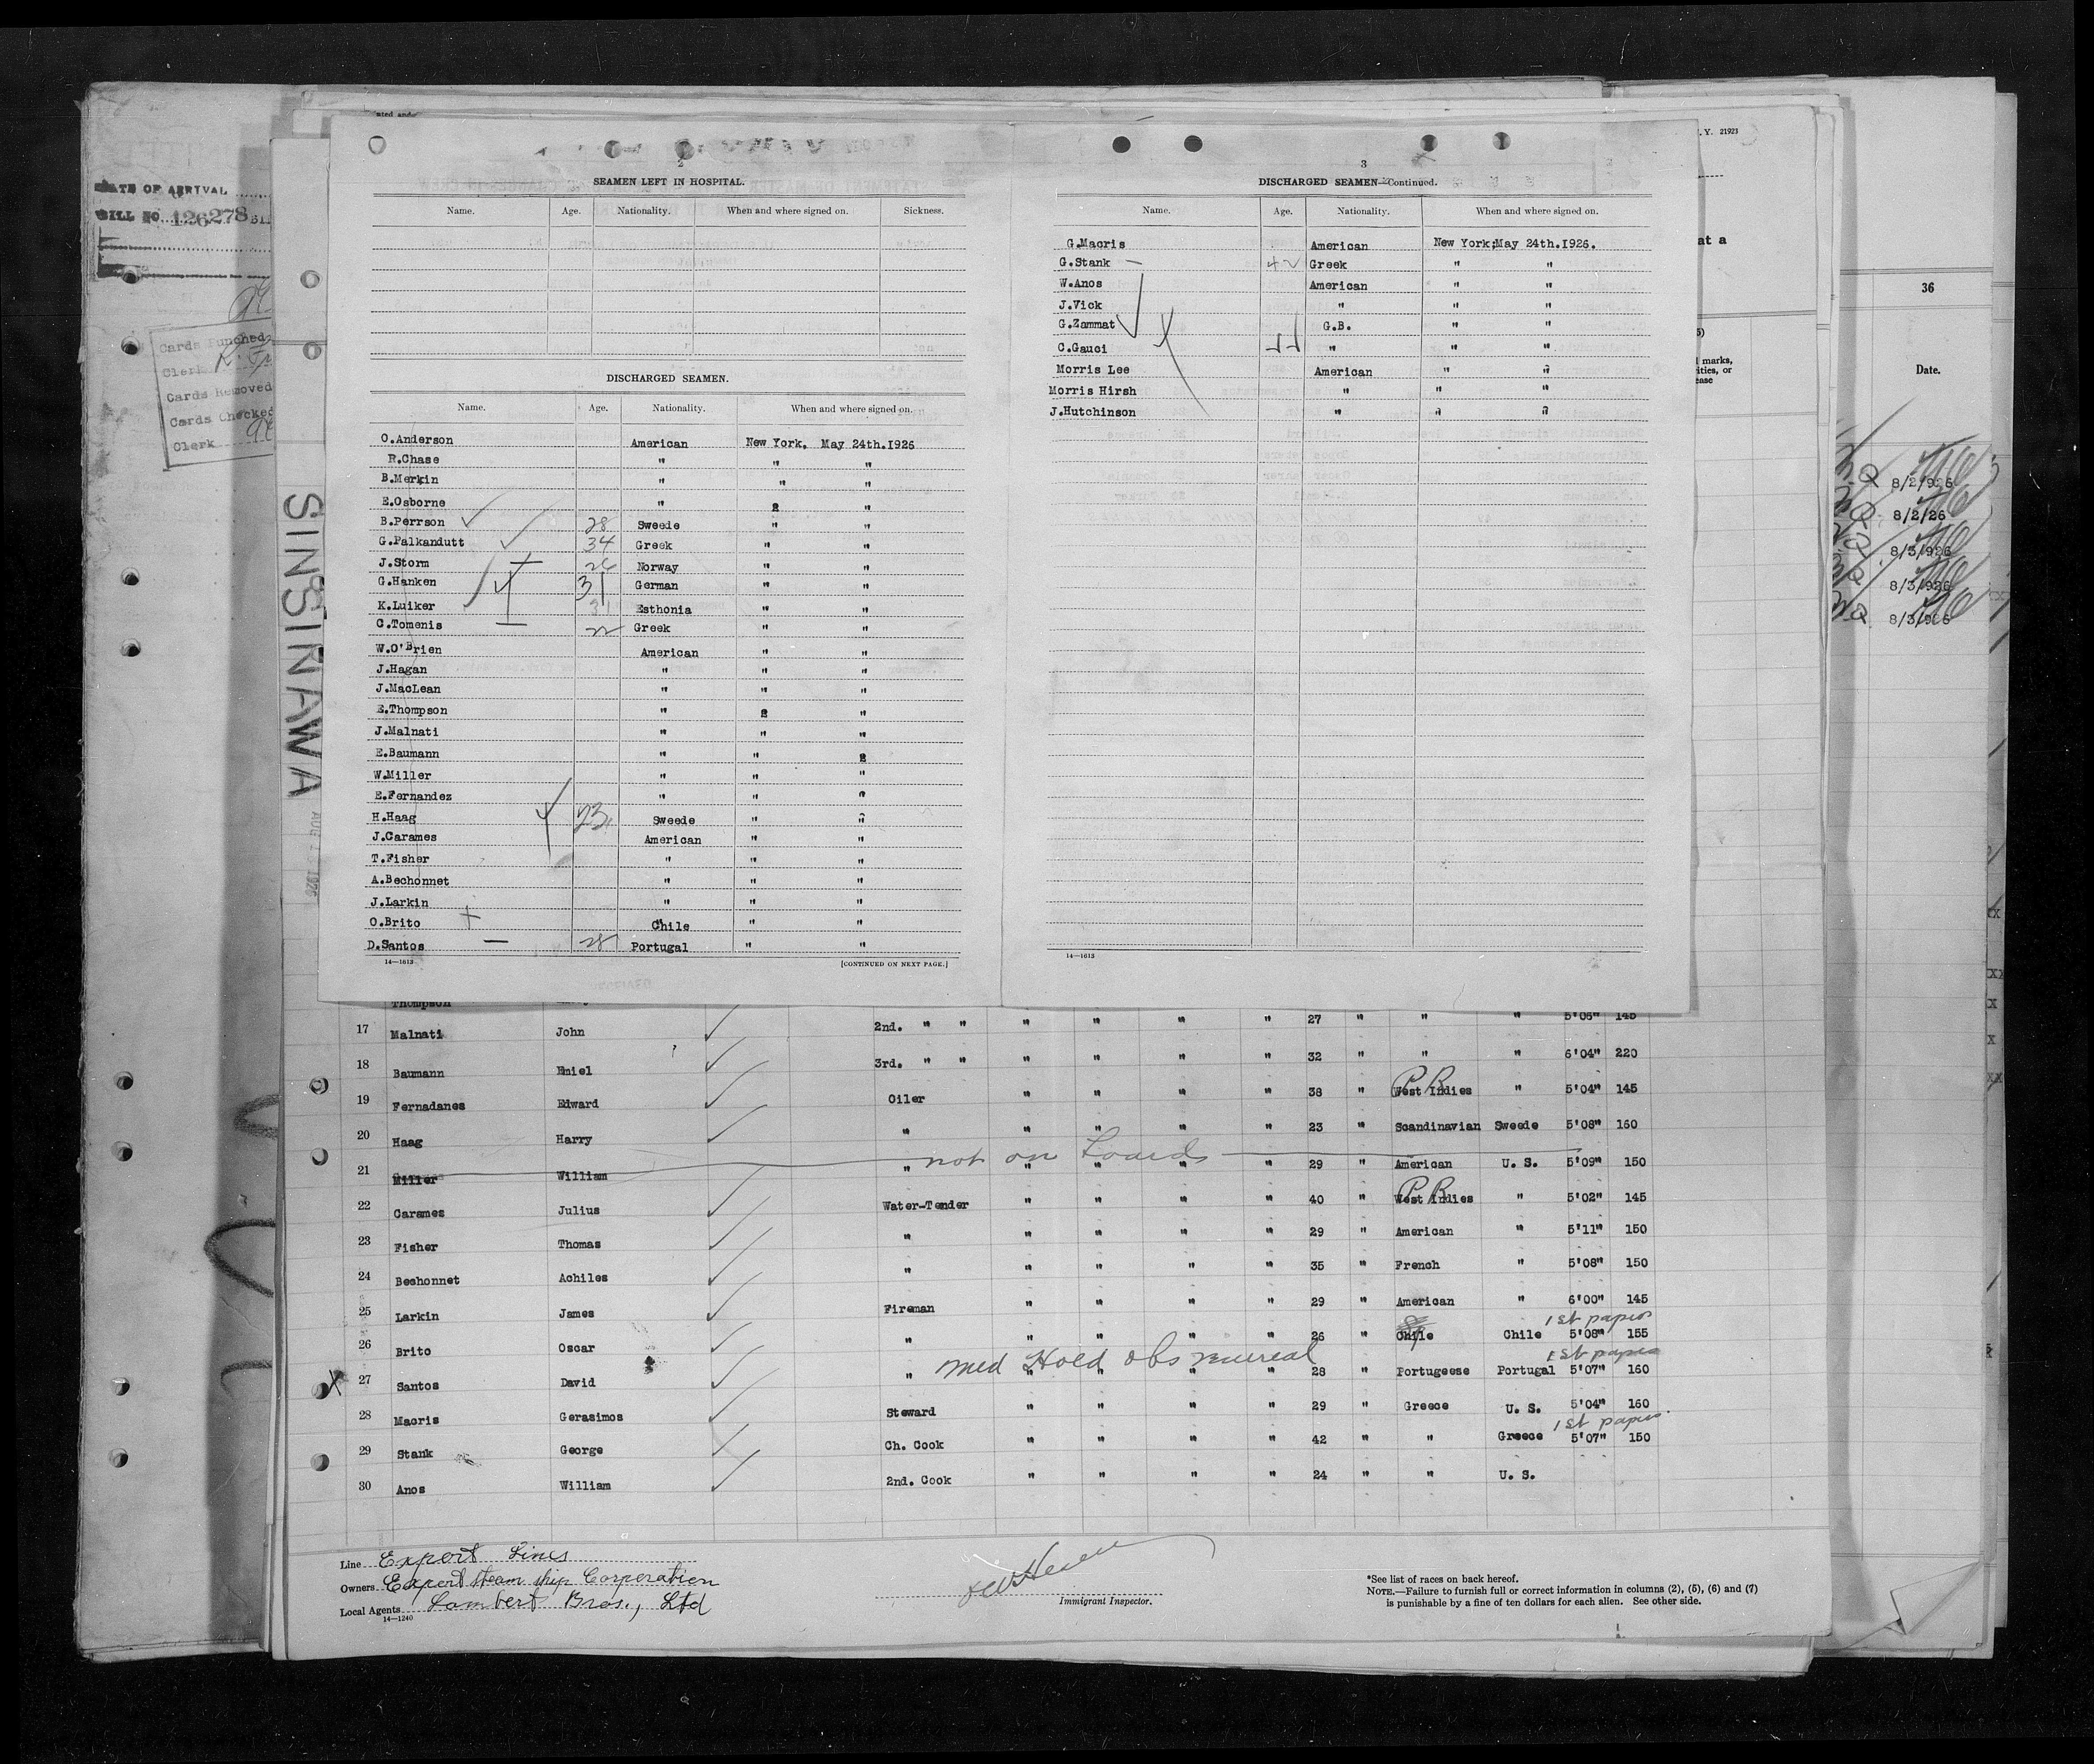 DATE OF ARRIVAL
BILL NO. 126278
Cards Punched
Clerk
Cards Removed
Cards Checked
Clerk
SINSINAWA
AUG 1926
2
SEAMEN LEFT IN HOSPITAL.
Name. Age. Nationality. When and where signed on. Sickness.
DISCHARGED SEAMEN.
Name. Age. Nationality. When and where signed on.
O.Anderson American New York. May 24th.1926
R.Chase " " "
B.Merkin " " "
E.Osborne " "
B.Perrson 28 Sweede " "
G.Palkandutt 34 Greek " "
J.Storm 26 Norway " "
G.Hanken 31 German " "
K.Luiker 31 Esthonia " "
C.Tomenis 22 Greek " "
W.O'Brien American " "
J.Hagan " " "
J.MacLean " " "
E.Thompson " "
J.Malnati " " "
E.Baumann " "
W.Miller " " "
E.Fernandez " " "
H.Haag 23 Sweede " "
J.Carames American " "
T.Fisher " " "
A.Bechonnet " " "
J.Larkin " " "
O.Brito Chile " "
D.Santos 28 Portugal " "
14—1613 [CONTINUED ON NEXT PAGE.]
3
DISCHARGED SEAMEN—Continued.
Name. Age. Nationality. When and where signed on.
G.Macris American New York;May 24th.1926.
G.Stank 42 Greek " "
W.Anos American " "
J.Vick " " "
G.Zammat G.B. " "
C.Gauci " " "
Morris Lee American " "
Morris Hirsh " " "
J.Hutchinson " " "
14—1613
N.Y. 21923
at a
marks,
36
Date.
8/2/926
8/2/26
8/3/926
8/3/926
8/3/926
Thompson
17 Malnati John 2nd. " " " " " " 27 " " " 5'05" 145
18 Baumann Emiel 3rd. " " " " " " 32 " " " 6'04" 220
19 Fernadanes Edward Oiler " " " " 38 " West Indies " 5'04" 145
PR
20 Haag Harry " " " " " 23 " Scandinavian Sweede 5'08" 160
not on board
21 Miller William " " " " " 29 " American U. S. 5'09" 150
22 Caramez Julius Water-Tender " " " " 40 " West Indies " 5'02" 145
PR
23 Fisher Thomas " " " " " 29 " American " 5'11" 150
24 Beshonnet Achiles " " " " " 35 " French " 5'08" 150
25 Larkin James Fireman " " " " 29 " American " 6'00" 145
1st papers
26 Brito Oscar " " " " " 26 " Chile Chile 5'08" 155
Med Hold obs venereal 1st papers
27 Santos David " " " " " 28 " Portugeese Portugal 5'07" 160
28 Macris Gerasimos Steward " " " " 29 " Greece U. S. 5'04" 160
1st papers.
29 Stank George Ch. Cook " " " " 42 " " Greece 5'07" 150
30 Anos William 2nd. Cook " " " " 24 " " U. S.
Line Export Lines
Owners Export Steam ship Corporation
Local Agents Lambert Bros., Ltd
14—1240
Immigrant Inspector.
*See list of races on back hereof.
NOTE.—Failure to furnish full or correct information in columns (2), (5), (6) and (7)
is punishable by a fine of ten dollars for each alien. See other side.